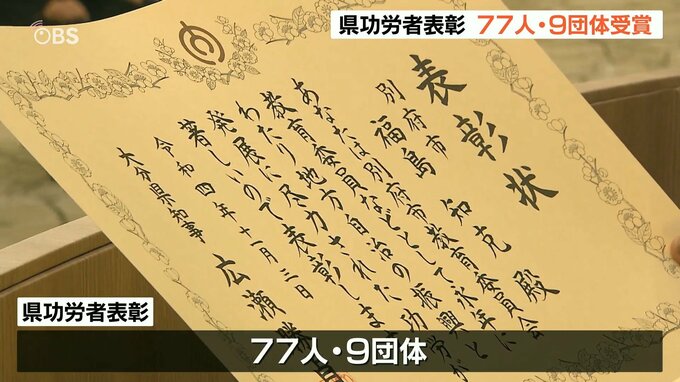 OBS
県功労者表彰 77人・9団体受賞
表彰状
別府市
福島 知克 殿
あなたは別府市教育委員会
教育委員などとして永年に
わたり地方自治の振興と
発展に尽力された功労が
著しいので表彰しま
令和四年十一月三日
大分県知事 広瀬勝貞
県功労者表彰
77人・9団体